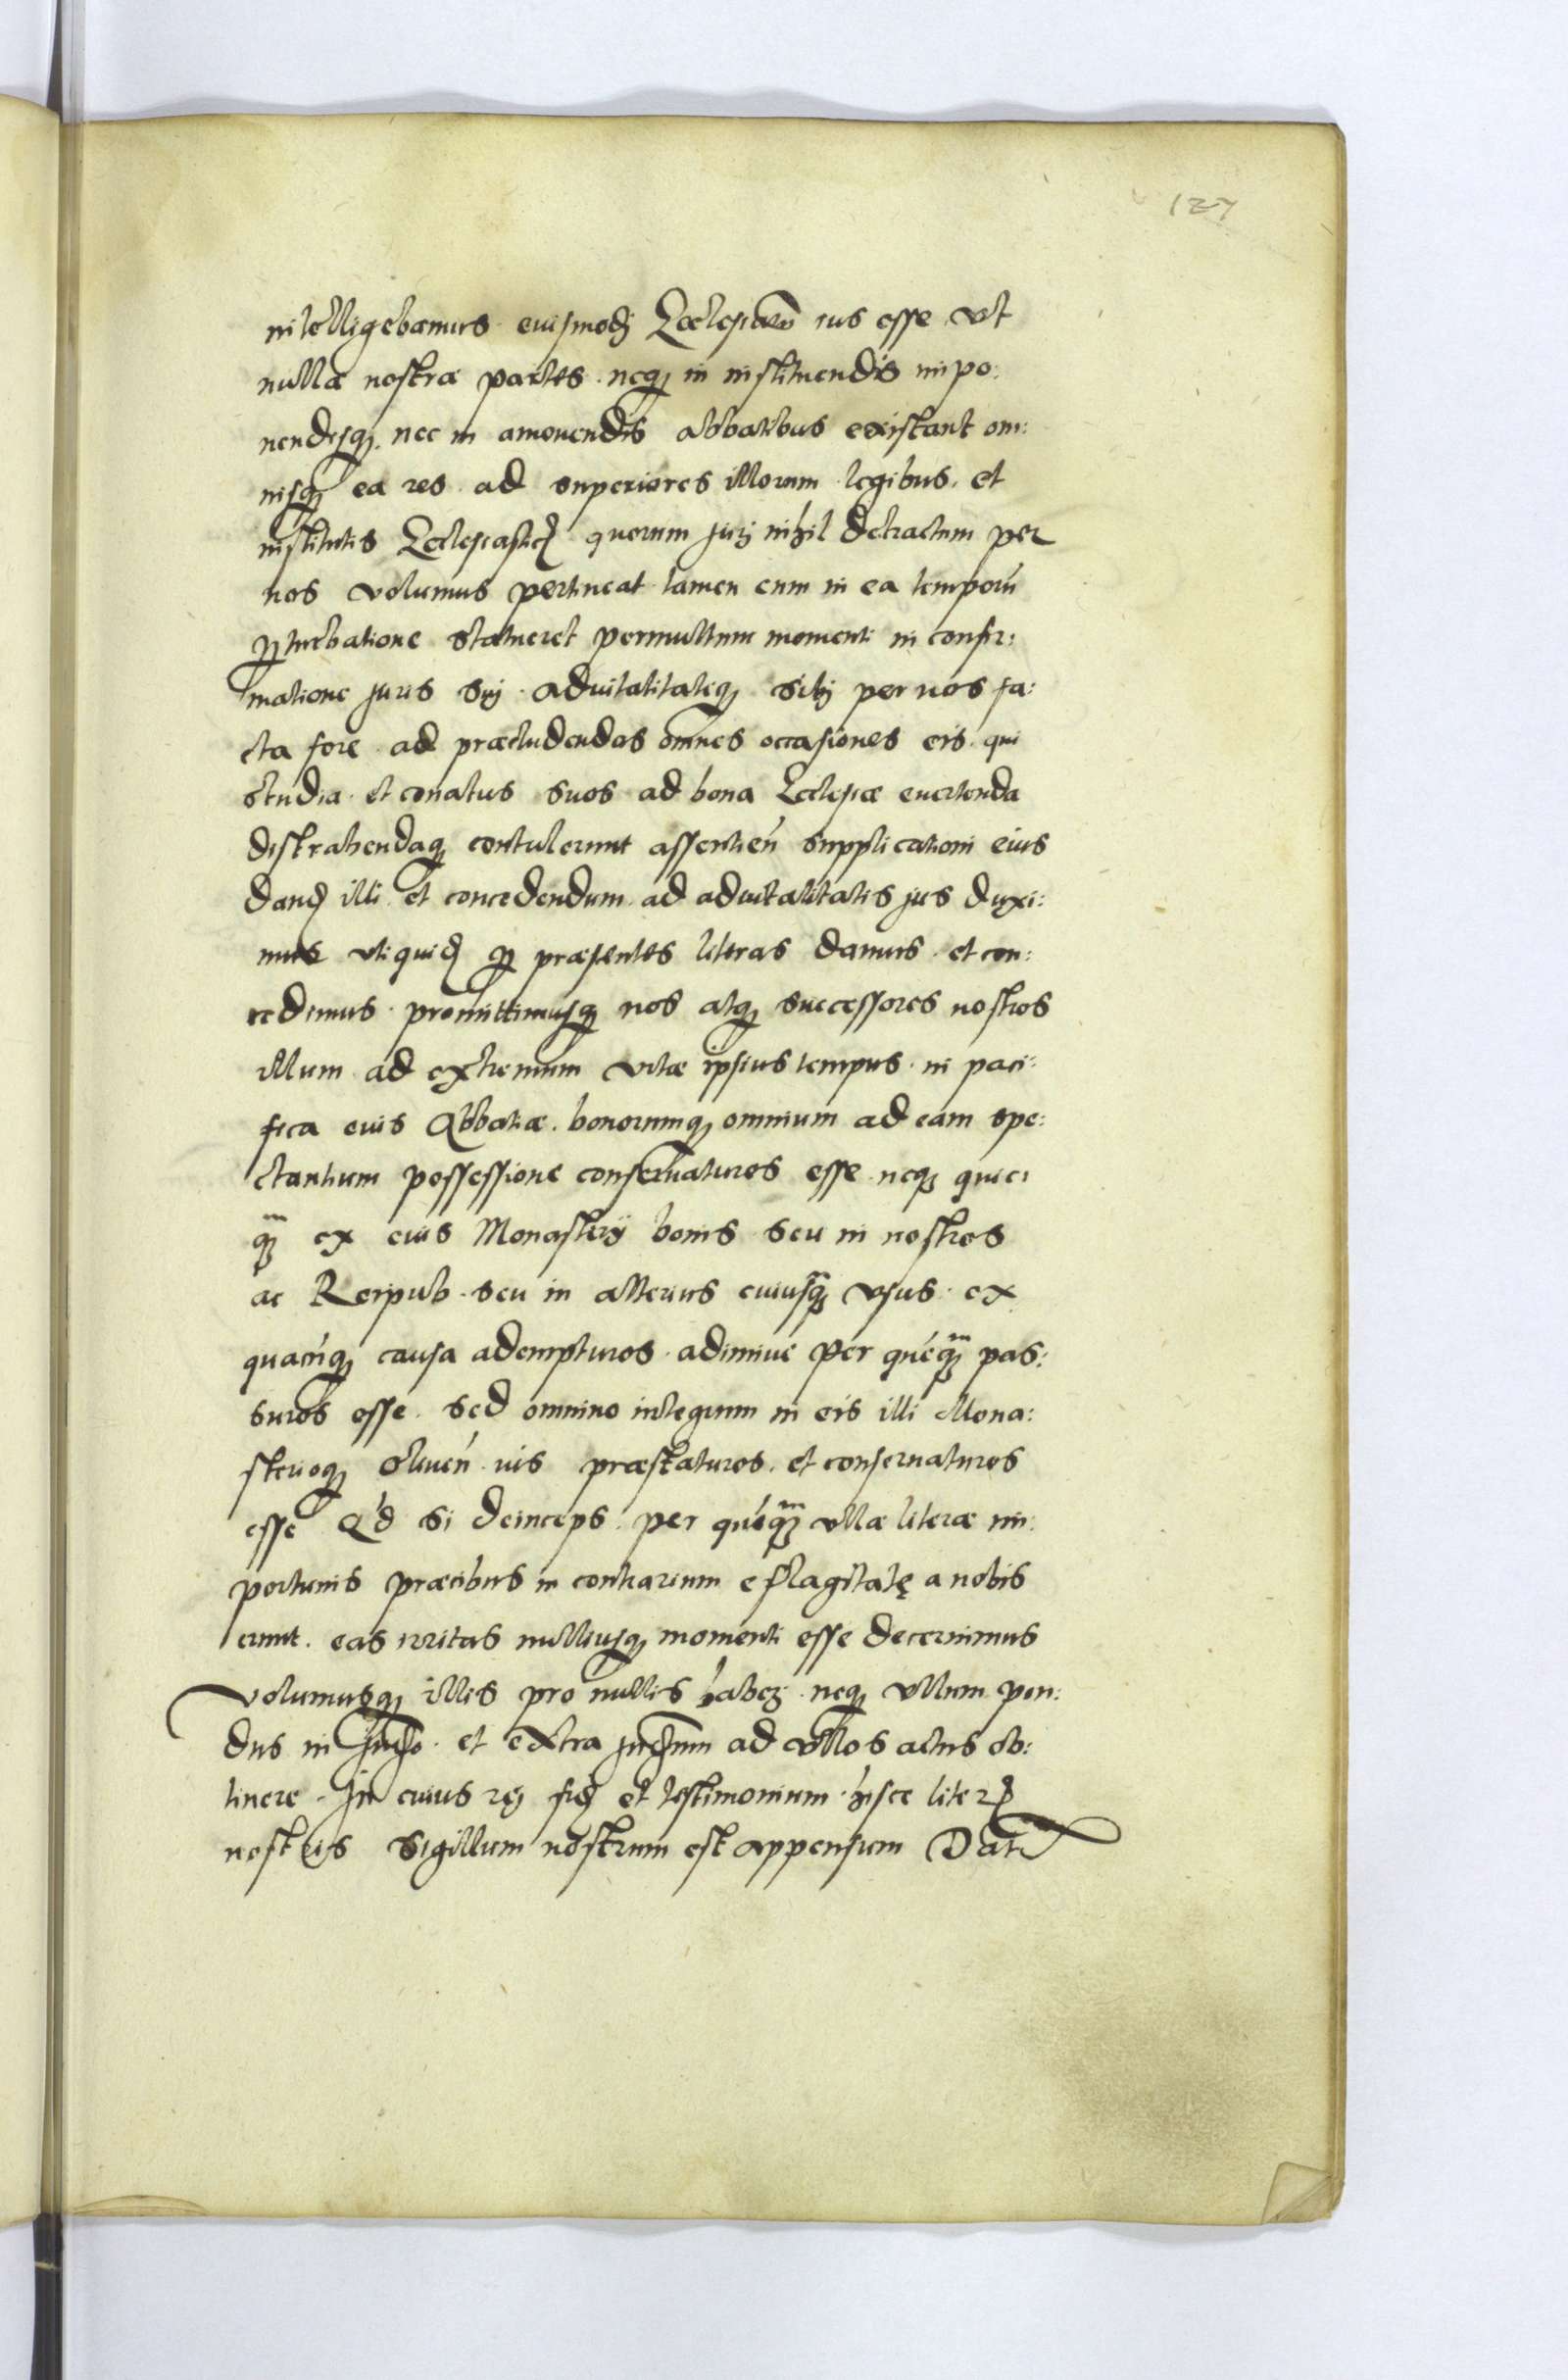 127
intelligebamus eiusmodj Ecclesiarũ ius esse, vt
nullæ nostræ partes neq3 in instituendis impo:
nendisq3 nec in amouendis abbatibus existant om:
nisq3 ea res ad superiores illorum legibus et
institutis Ecclesiastic quorum jurj nihil detractum per
nos volumus pertineat tamen cum in ea temporũ
ꝑturbatione statueret permultum momenti in confir:
matione juris suj aduitalitatiq3 sibj per nos fa:
cta fore ad præcludendas omnes occasiones eis qui
studia et conatus suos ad bona Ecclesiæ euertenda
distrahendaq3 contulerunt assentien̄ supplicationi eius
dand illi et concedendum ad aduitalitatis jus duxi:
mus vti quid ꝑ præsentes literas damus et con:
cedimus promittimusq3 nos atq3 successores nostros
illum ad extremum vitæ ipsius tempus in paci:
fica eius Abbatiæ bonorumq3 omnium ad eam spe:
ctantium possessione conseruaturos esse neq3 quic:
q̃3 ex eius Monasterij bonis seu in nostros
ac Reipub. seu in alterius cuiusq̃3 vsus ex
quacũq3 causa adempturos adimiue per quẽq̃3 pas:
suros esse sed omnino integrum in eis illi Mona:
sterioq3 Oliuen̄ ius præstaturos et conseruaturos
esse Q'd si deinceps per quẽq̃3 vllæ literæ im:
portunis præcibus in contrarium efflagitatę a nobis
erunt eas irritas nulliusq3 momenti esse decernimus
volumusq3 illis pro nullis haberj neq3 vllum pon:
dus in judo et extra judium ad vllos actus ob:
tinere. In cuius rej fid et testimonium hisce liter
nostris sigillum nostrum est appensum Dat